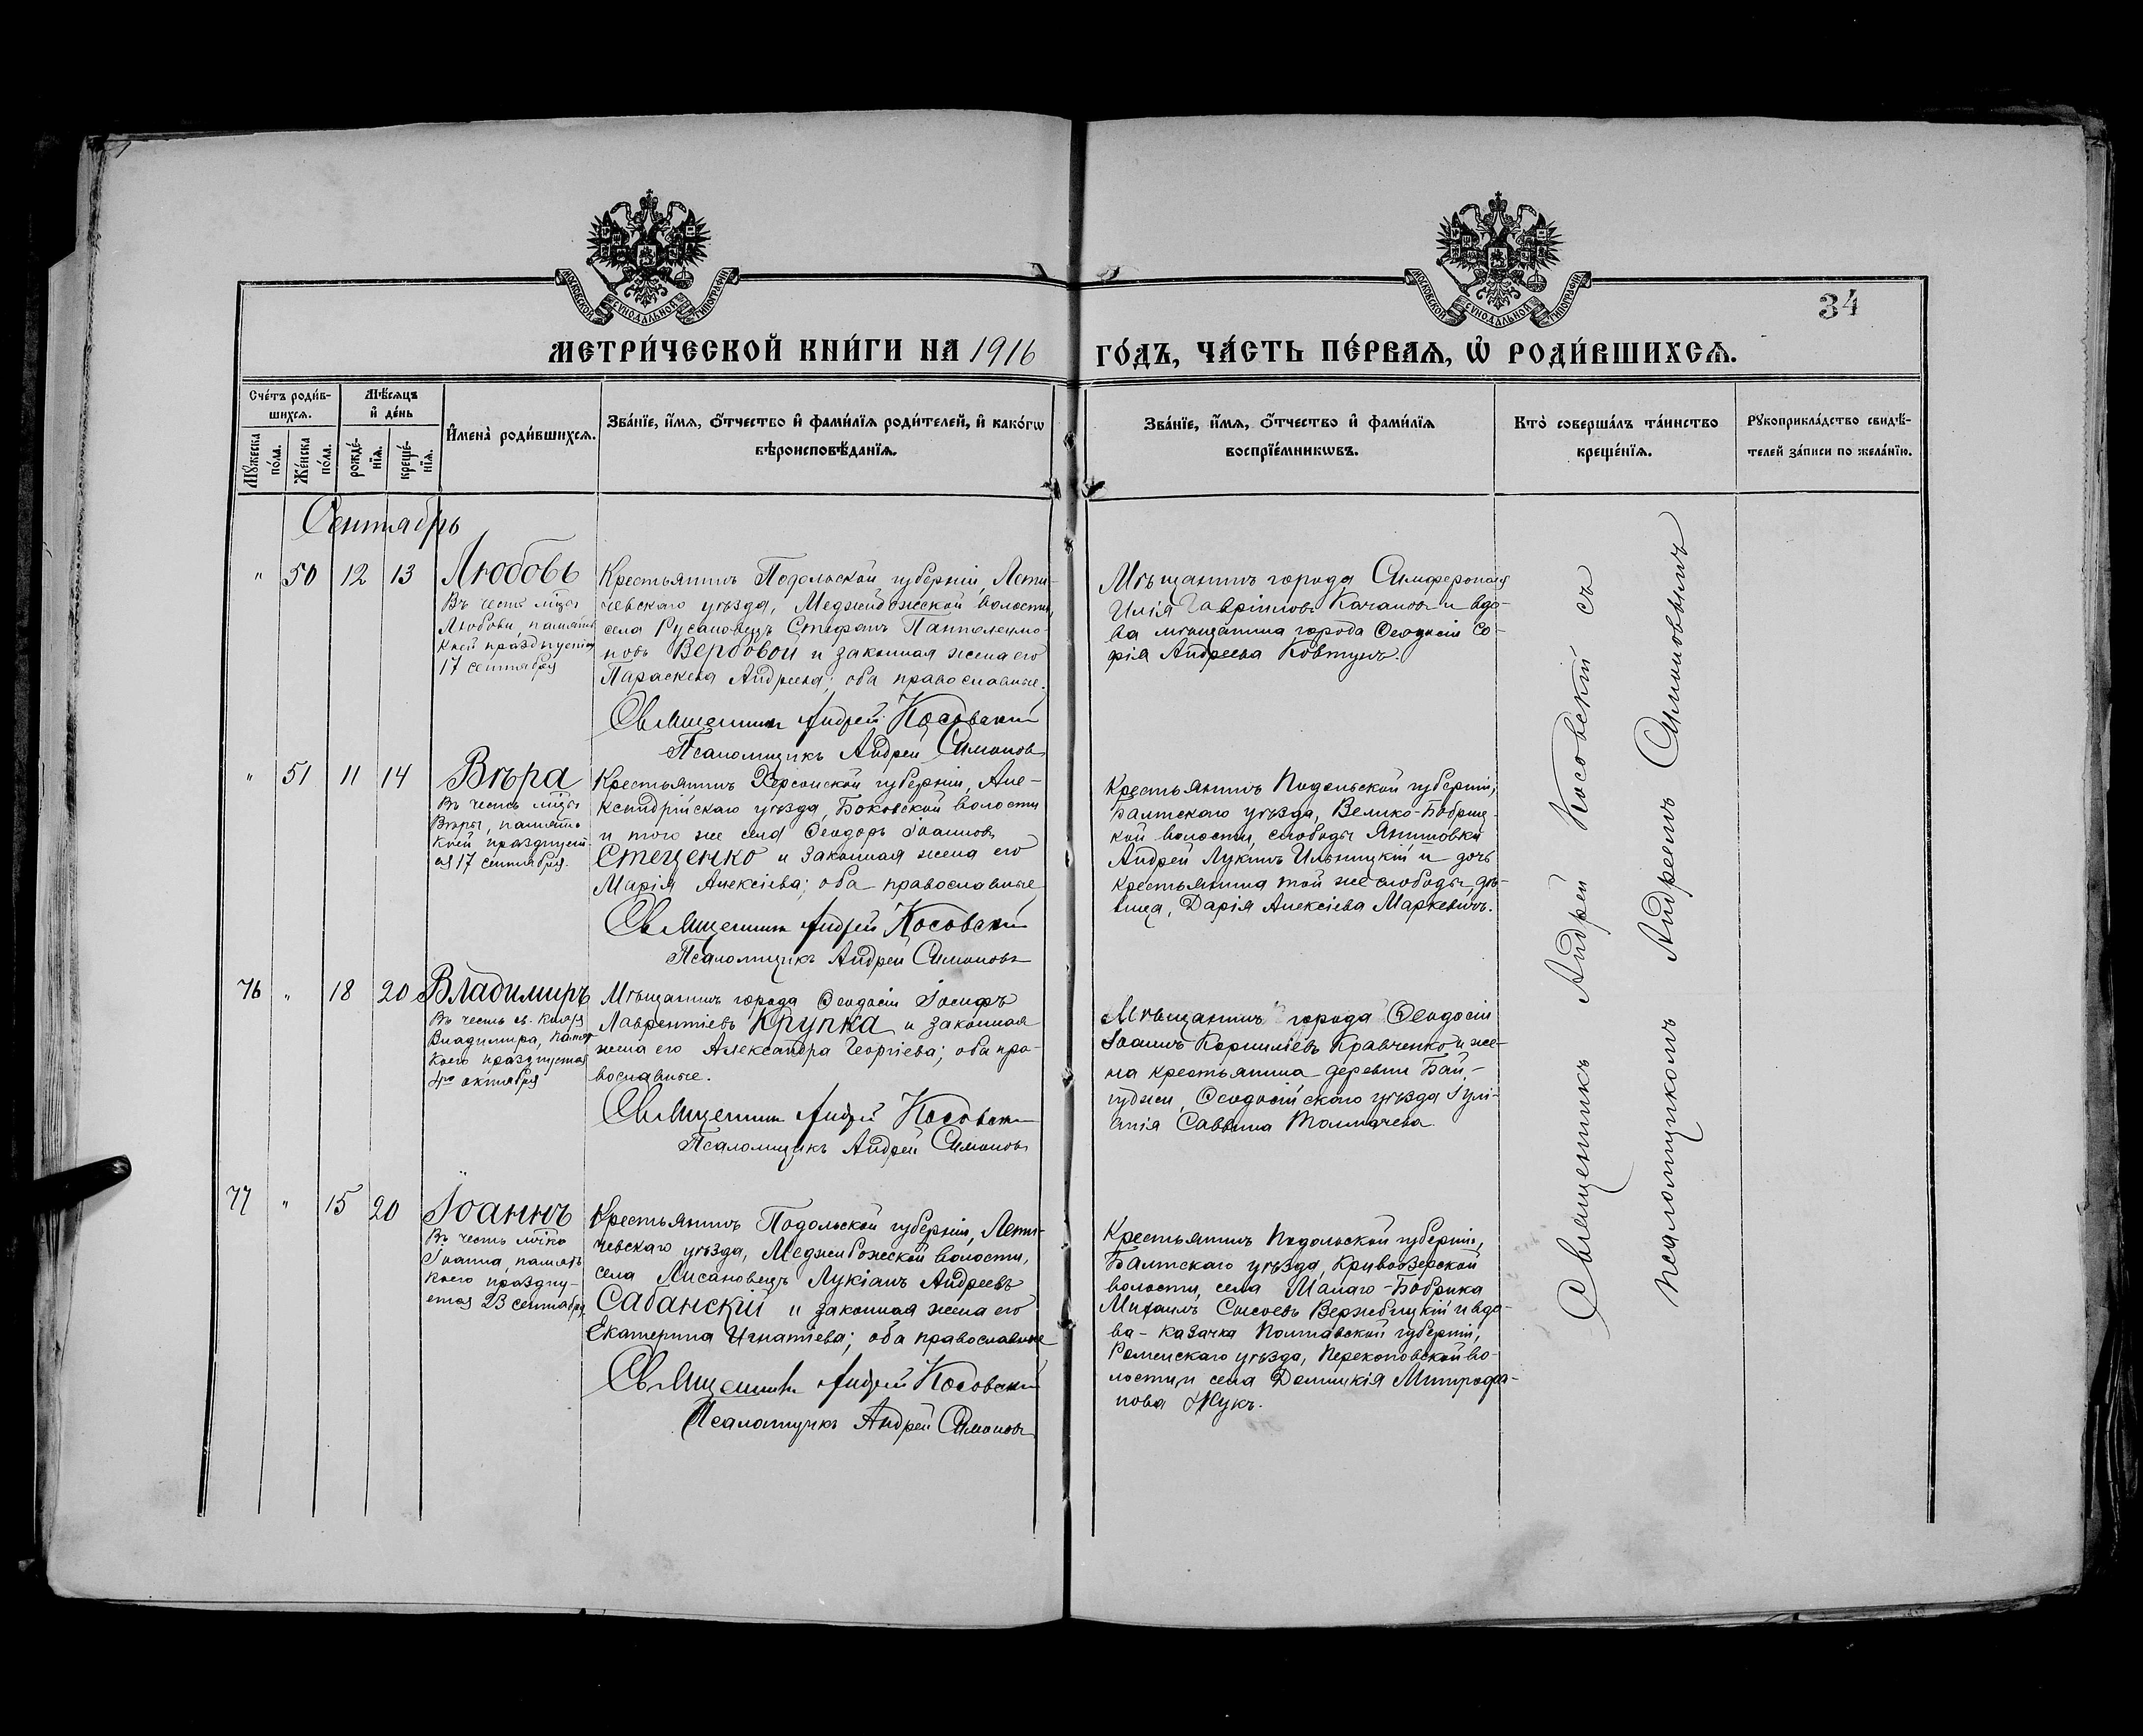 МОСКОВСКОЙ СѴНОДАЛЬНОЙ ТИПОГРАФІИ
МОСКОВСКОЙ СѴНОДАЛЬНОЙ ТИПОГРАФІИ
34
МЕТРИ́ЧЕСКОЙ КНИ́ГИ НА 1916 ГО́ДЪ, ЧА́СТЬ ПЕ́РВАѦ, Ѽ РОДИ́ВШИХСѦ.
Сче́тъ роди́в-
шихсѧ.
Мѣ́сѧцъ
и҆ де́нь
Мꙋ́жеска
по́ла.
Же́нска
по́ла.
рожде́-
нїѧ.
креще́-
нїѧ.
И҆мена̀ роди́вшихсѧ.
Зва́нїе, и҆́мѧ, ѻ҆́тчество и҆ фами́лїѧ роди́телей, и҆ како́гѡ
вѣроисповѣ́данїѧ.
Зва́нїе, и҆́мѧ, ѻ҆́тчество и҆ фами́лїѧ
воспрїе́мникѡвъ.
Кто̀ соверша́лъ та́инство
креще́нїѧ.
Рꙋкоприкла́дство свидѣ́-
телей за́писи по жела́нїю.
Сентябрь
" 50 12 13 Любовь
Въ честь мцы
Любови, память
коей празднуется
17 сентября
Крестьянинъ Подольской губерніи, Лети-
чевскаго уѣзда, Меджибожской волости,
села Русановецъ Стефанъ Пантелеимо-
новъ Вербовой и законная жена его
Параскева Андреева; оба православные.
Священникъ Андрей Косовскій
Псаломщикъ Андрей Симоновъ
Мѣщанинъ города Симферополя
Илія Гавріиловъ Качановъ и вдо-
ва мѣщанина города Ѳеодосіи Со-
фія Андреева Ковтунъ.
" 51 11 14 Вѣра
Въ честь мцы
Вѣры, память
коей празднует-
ся 17 сентября.
Крестьянинъ Херсонской губерніи, Але-
ксандрійскаго уѣзда, Боковской волости
и того же села Ѳеодоръ Іоанновъ
Стеценко и законная жена его
Марія Алексіева; оба православные
Священникъ Андрей Косовскій
Псаломщикъ Андрей Симоновъ
Крестьянинъ Подольской губерніи,
Балтскаго уѣзда, Велико-Бобриц-
кой волости, слободы
Андрей Лукинъ Ильницкій и дочь
крестьянина той же слободы, дѣ-
вица, Дарія Алексіева Маркевичъ.
76 " 18 20 Владимиръ
Въ честь св. князя
Владимира, память
коего празднуется
4го октября
Мѣщанинъ города Ѳеодосіи Іосифъ
Лаврентіевъ Крупка и законная
жена его Александра Георгіева; оба пра-
вославные.
Священникъ Андрей Косовскій
Псаломщикъ Андрей Симоновъ
Мѣщанинъ города Ѳеодосіи
Іоаннъ Корниліевъ Кравченко и же-
на крестьянина деревни Бай-
гуджи, Ѳеодосійскаго уѣзда Іулі-
анія Саввина Толмачева.
77 " 15 20 Іоаннъ
Въ честь
Іоанна, память
коего праздну-
ется 23 сентября
Крестьянинъ Подольской губерніи, Лети-
чевскаго уѣзда, Меджибожской волости,
села Лисановецъ Лукіанъ Андреевъ
Сабанскій и законная жена его
Екатерина Игнатіева; оба православные
Священникъ Андрей Косовскій
Псаломщикъ Андрей Симоновъ
Крестьянинъ Подольской губерніи,
Балтскаго уѣзда, Кривоозерской
волости, села Малаго-Бобрика
Михаилъ Сысоевъ Вержбицкій и вдо-
ва-казачка Полтавской губерніи,
Роменскаго уѣзда, Перекоповской во-
лости и села Домникія Митрофа-
нова Жукъ.
Священникъ Андрей Косовскій съ
псаломщикомъ Андреемъ Симоновымъ